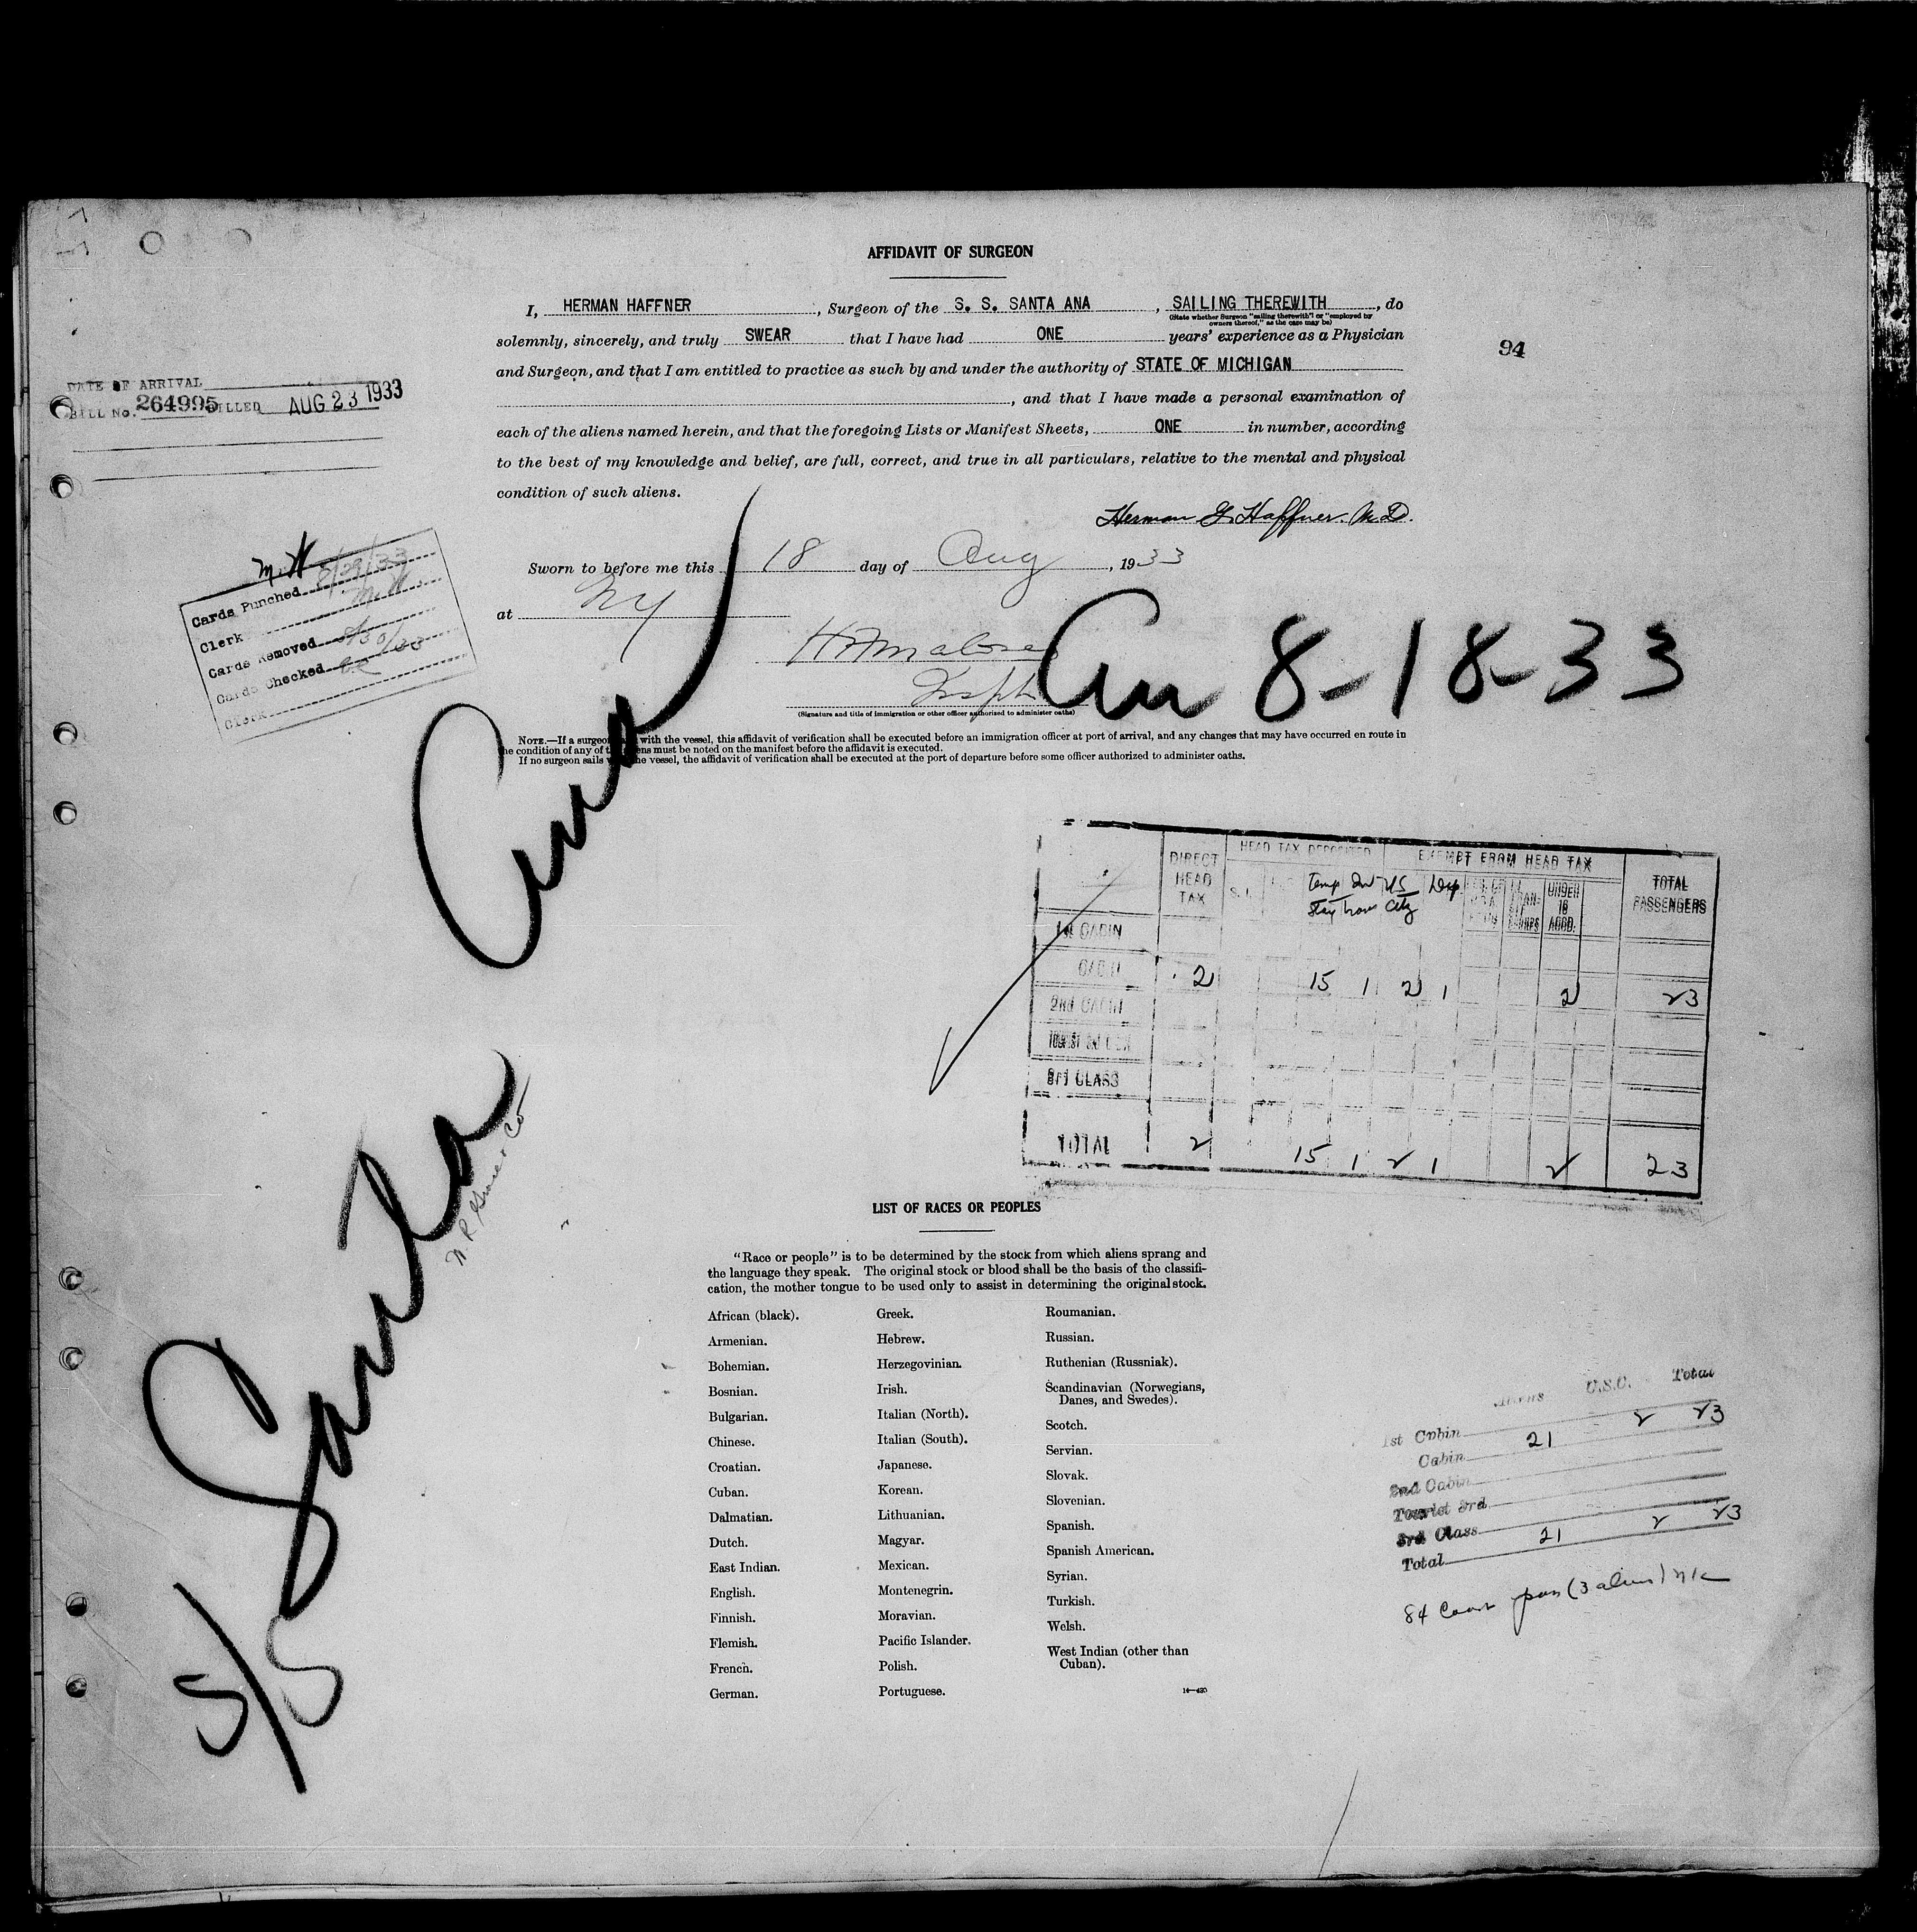 AFFIDAVIT OF SURGEON
I, HERMAN HAFFNER, Surgeon of the S. S. SANTA ANA, SAILING THEREWITH, do
(State whether Surgeon "sailing therewith" or "employed by
owners thereof," as the case may be)
solemnly, sincerely, and truly SWEAR that I have had ONE years' experience as a Physician
94
and Surgeon, and that I am entitled to practice as such by and under the authority of STATE OF MICHIGAN
, and that I have made a personal examination of
each of the aliens named herein, and that the foregoing Lists or Manifest Sheets, ONE in number, according
to the best of my knowledge and belief, are full, correct, and true in all particulars, relative to the mental and physical
condition of such aliens.
Herman G. Haffner. M.D.
DATE OF ARRIVAL
BILL No. 264995 BILLED AUG 23 1933
Sworn to before me this 18 day of Aug, 1933
at NY
M.H 8/29/33
Cards Punched
Clerk M.H.
Cards Removed 8/30/33
Cards Checked
Clerk
(Signature and title of immigration or other officer authorized to administer oaths)
Arr 8-18-33
NOTE.—If a surgeon with the vessel, this affidavit of verification shall be executed before an immigration officer at port of arrival, and any changes that may have occurred en route in
the condition of any of the aliens must be noted on the manifest before the affidavit is executed.
If no surgeon sails with the vessel, the affidavit of verification shall be executed at the port of departure before some officer authorized to administer oaths.
S/S Santa Ana
DIRECT HEAD TAX
HEAD TAX DEPOSITED
EXEMPT FROM HEAD TAX
TOTAL PASSENGERS
S.I. Temp Stay US City UNDER 16 ACCD.
1st CABIN
CABIN 2 15 1 2 1 2 23
2nd CABIN
TOURIST 3rd
3rd CLASS
TOTAL 2 15 1 2 1 2 23
LIST OF RACES OR PEOPLES
"Race or people" is to be determined by the stock from which aliens sprang and
the language they speak. The original stock or blood shall be the basis of the classifi-
cation, the mother tongue to be used only to assist in determining the original stock.
African (black).
Armenian.
Bohemian.
Bosnian.
Bulgarian.
Chinese.
Croatian.
Cuban.
Dalmatian.
Dutch.
East Indian.
English.
Finnish.
Flemish.
French.
German.
Greek.
Hebrew.
Herzegovinian.
Irish.
Italian (North).
Italian (South).
Japanese.
Korean.
Lithuanian.
Magyar.
Mexican.
Montenegrin.
Moravian.
Pacific Islander.
Polish.
Portuguese.
Roumanian.
Russian.
Ruthenian (Russniak).
Scandinavian (Norwegians,
Danes, and Swedes).
Scotch.
Servian.
Slovak.
Slovenian.
Spanish.
Spanish American.
Syrian.
Turkish.
Welsh.
West Indian (other than
Cuban).
14—430
Aliens U.S.C. Total
1st Cabin 21 2 23
Cabin
2nd Cabin
Tourist 3rd
3rd Class
Total 21 2 23
84 pass (3 aliens)